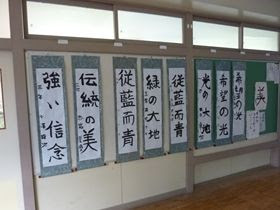 強い信念
伝統の美
従藍而青
緑の大地
従藍而青
光の大地
希望の光
希望の光
美